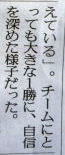 えている」。チームにと
っても大きな1勝に、自信
を深めた様子だった。